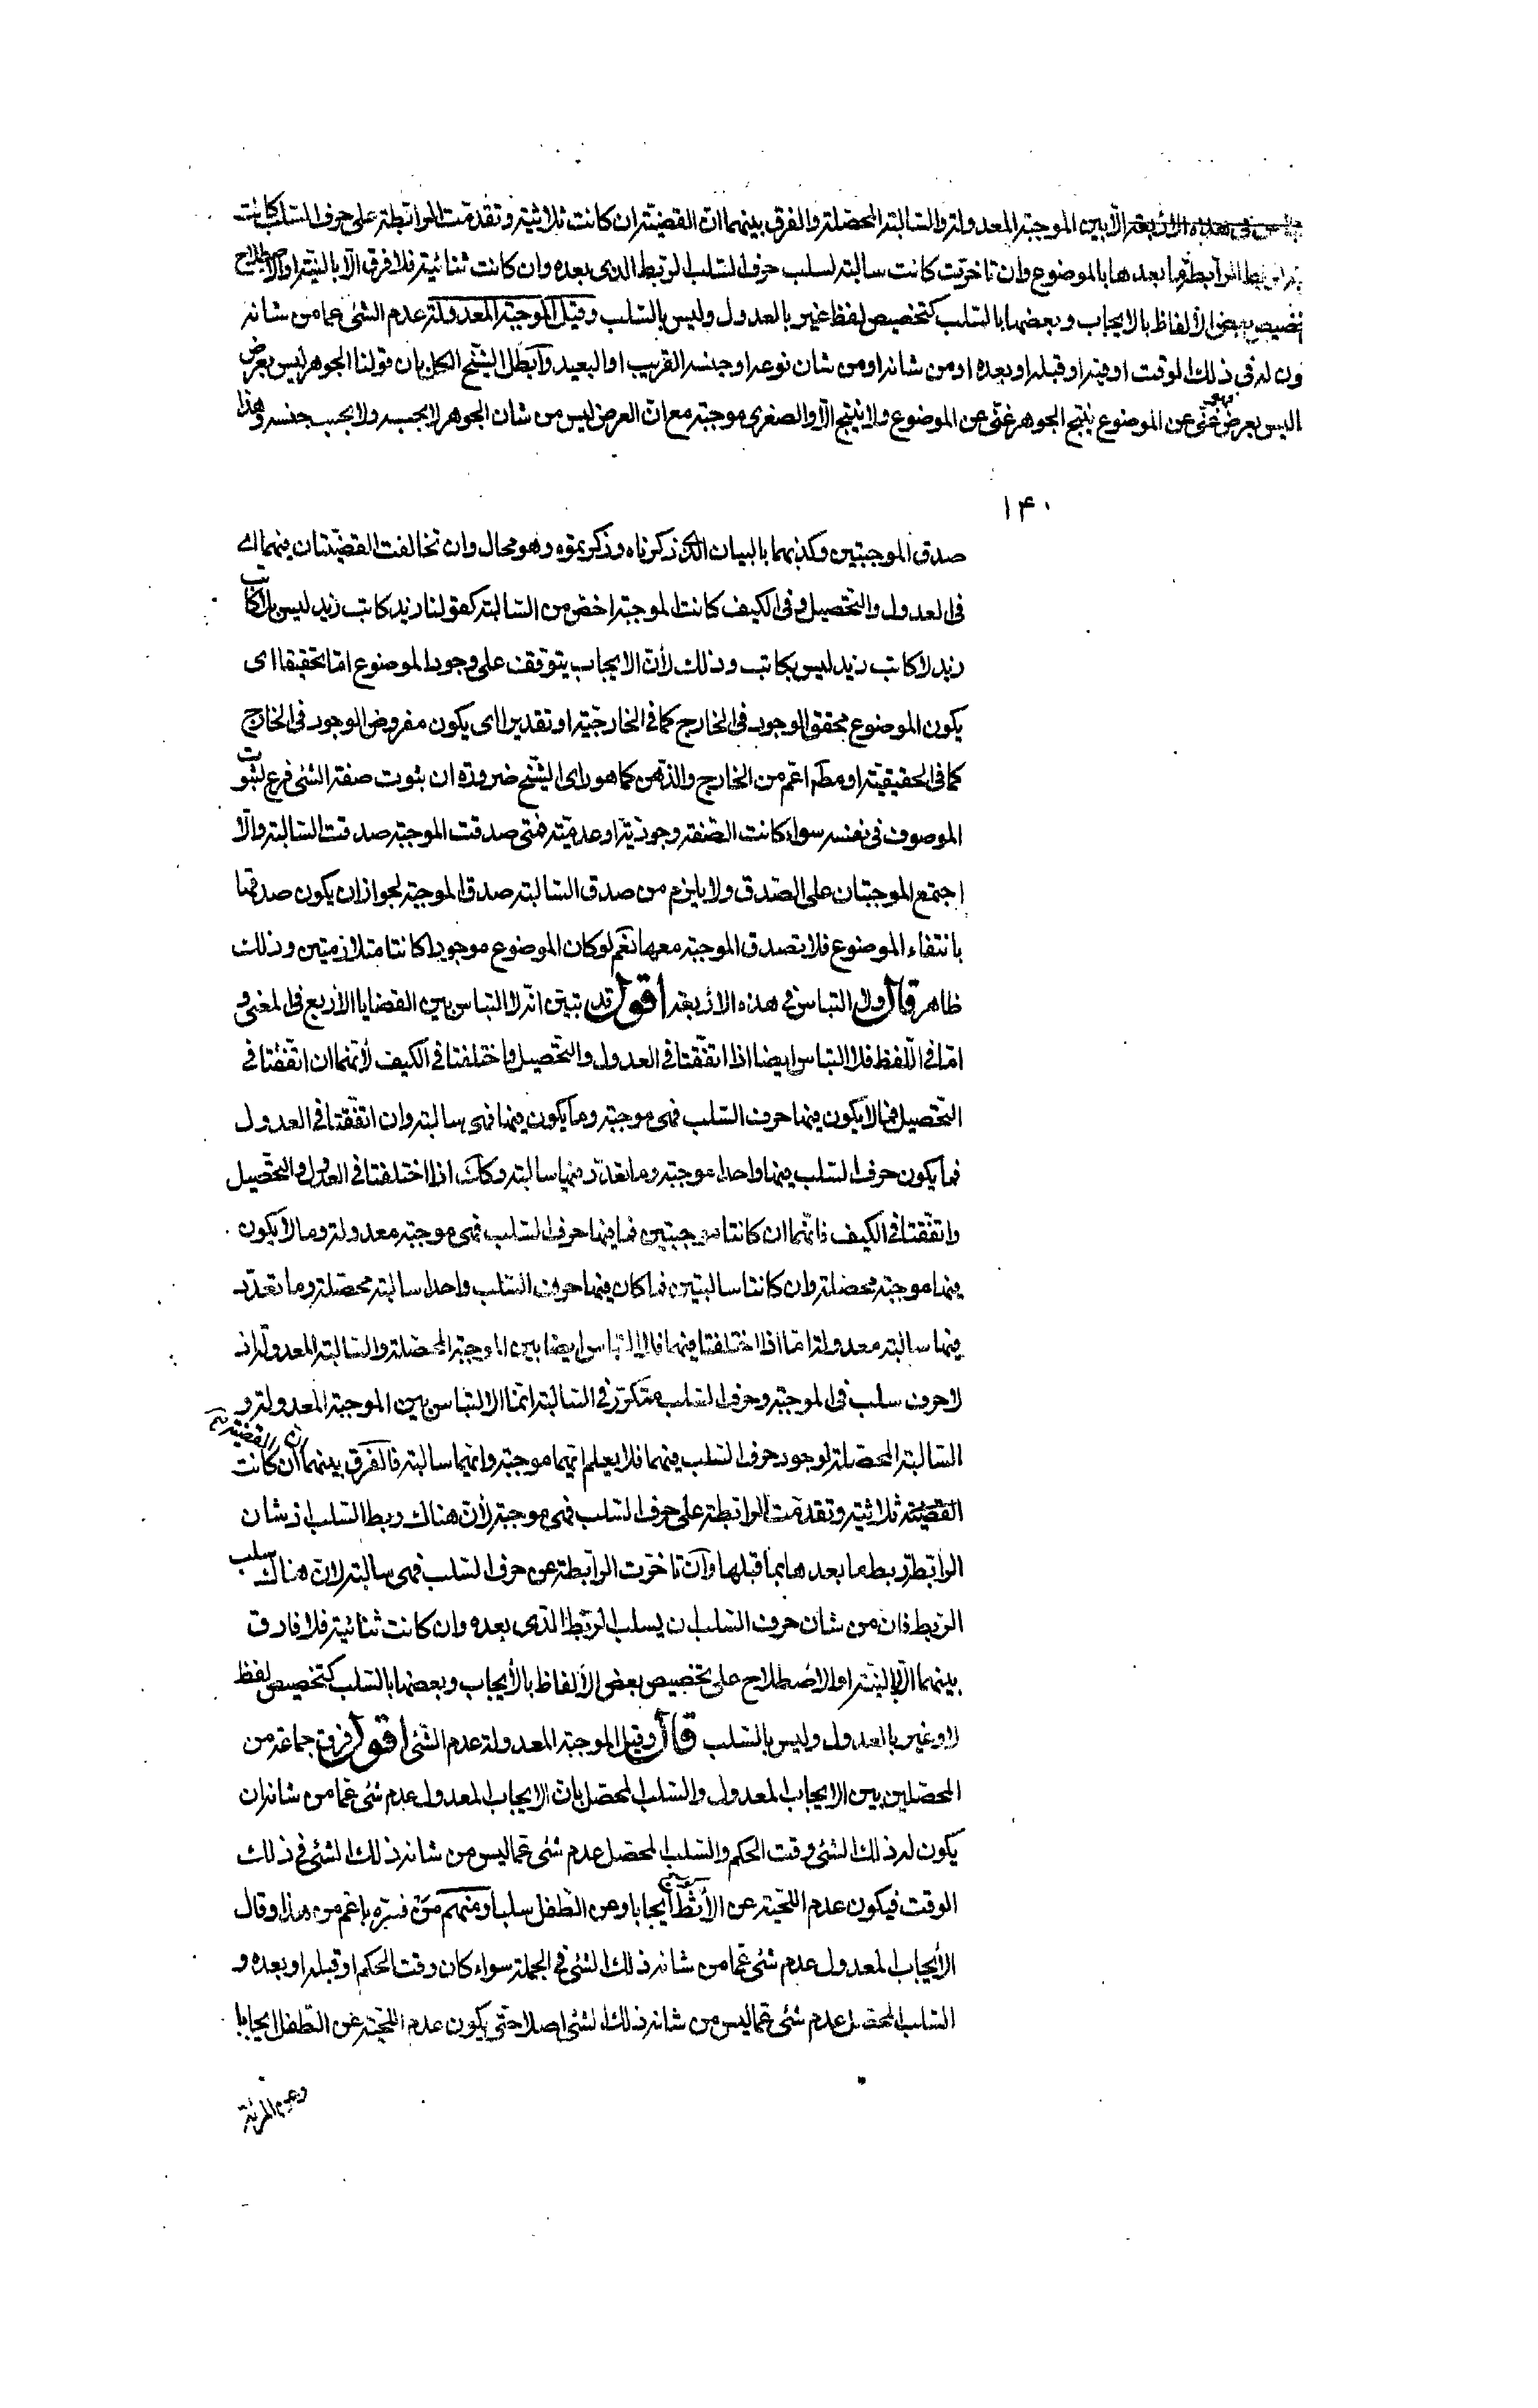 التباس في هذه الأربعة الّا بين الموجبة المعدولة والسالبة المحصّلة والفرق بينهما انّ القضيّة ان كانت ثلاثيّة وتقدّمت الرابطة على حرف السلب كانت
لربط الرابطة ما بعدها بالموضوع وان تاخّرت كانت سالبة لسلب حرف السلب الربط الذى بعده وان كانت ثنائيّة فلا فرق الّا بالنيّة او الاصطلاح
تخصيص بعض الألفاظ بالايجاب وبعضها بالسلب كتخصيص لفظ غير بالعدول وليس بالسلب وقيل الموجبة المعدولة عدم الشئ عما من شانه
ون له في ذلك الوقت او فيه او قبله او بعده او من شانه او من شان نوعه او جنسه القريب او البعيد وابطل الشيخ الكل بان قولنا الجوهر ليس بعرض
اليس بعرض فهو غنى عن الموضوع ينتج الجوهر غنى عن الموضوع ولا ينتج الّا والصغرى موجبة مع انّ العرض ليس من شان الجوهر لا بحسبه ولا بحسب جنسه وهذا
١۴٠
صدق الموجبتين وكذبهما بالبيان الذى ذكرناه وذكر بقوه وهو محال وان تخالفت القضيّتان فيهما اى
فى العدول والتحصيل وفى الكيف كانت الموجبة اخصّ من السالبة كقولنا زيد كاتب زيد ليس بلا كاتب
زيد لا كاتب زيد ليس بكاتب وذلك لأنّ الايجاب يتوقف على وجود الموضوع امّا تحقيقا اى
يكون الموضوع محقق الوجود فى الخارج كما فى الخارجيّة او تقديرا اى يكون مفروض الوجود فى الخارج
كما فى الحقيقيّة او مط اعمّ من الخارج والذهن كما هو راى الشيخ ضرورة ان ثبوت صفة الشئ فرع لثبوت
الموصوف فى نفسه سواء كانت الصّفة وجوديّة او عدميّة فمتى صدقت الموجبة صدقت السالبة والّا
اجتمع الموجبتان على الصّدق ولا يلزم من صدق السالبة صدق الموجبة لجواز ان يكون صدقها
بانتفاء الموضوع فلا تصدق الموجبة معها نعم لو كان الموضوع موجودا كانتا متلازمتين وذلك
ظاهر قال ولا التباس في هذه الاربعة اقول قد تبيّن انّه لا التباس بين القضايا الأربع فى المعنى و
امّا فى اللّفظ فلا التباس ايضا اذا اتفقتا فى العدول والتحصيل واختلفتا فى الكيف لأنّهما ان اتّفقتا فى
التّحصيل فما لا يكون فيها حرف السلب فهى موجبة وما يكون فيها فهى سالبة وان اتفّقتا فى العدول
فما يكون حرف السّلب فيها واحدا موجبة وما تعدّد فيها سالبة وكذلك اذا اختلفتا فى العدول والتحصيل
واتّفقتا فى الكيف فانّهما ان كانتا موجبتين فما فيها حرف السّلب فهى موجبة معدولة وما لا يكون
فيها موجبة محصّلة وان كانتا سالبتين فما كان فيها حرف السّلب واحدا سالبة محصّلة وما تعدّد
فيها سالبة معدولة امّا اذا اختلفتا فيهما فلا التباس ايضا بين الموجبة المحصّلة والسّالبة المعدولة اذ
لا حرف سلب فى الموجبة وحرف السّلب متكرّر فى السّالبة انّما الالتباس بين الموجبة المعدولة و
السّالبة المحصّلة لوجود حرف السّلب فيهما فلا يعلم ايّهما موجبة وايّهما سالبة فالفرق بينهما ان القضية ان كانت
القضيّة ثلاثيّة وتقدّمت الرابطة على حرف السّلب فهى موجبة لأنّ هناك ربط السّلب اذ شان
الرّابطة ربط ما بعدها بما قبلها وان تاخّرت الرابطة عن حرف السّلب فهى سالبة لانّ هناك سلب
الرّبط فان من شان حرف السّلب ان يسلب الربط الذى بعده وان كانت ثنائية فلا فارق
بينهما الّا بالنيّة او الاصطلاح على تخصيص بعض الألفاظ بالأيجاب وبعضها بالسّلب كتخصيص لفظ
لا وغير بالعدول وليس بالسّلب قال وقيل الموجبة المعدولة عدم الشّئ اقول فرق جماعة من
المحصّلين بين الايجاب المعدول والسّلب المحصّل بانّ الايجاب المعدول عدم شئ عمّا من شانه ان
يكون له ذلك الشئ وقت الحكم والسّلب المحصّل عدم شئ عمّا ليس من شانه ذلك الشئ فى ذلك
الوقت فيكون عدم اللّحية عن الأثط ايجابا وعن الطّفل سلبا ومنهم من فسّره باعمّ من هذا وقال
الأيجاب المعدول عدم شئ عمّا من شانه ذلك الشئ فى الجملة سواء كان وقت الحكم او قبله او بعده و
السّلب المحصّل عدم شئ عمّا ليس من شانه ذلك الشئ اصلا حتّى يكون عدم اللّحية عن الطّفل ايجابا
وعن المرئة